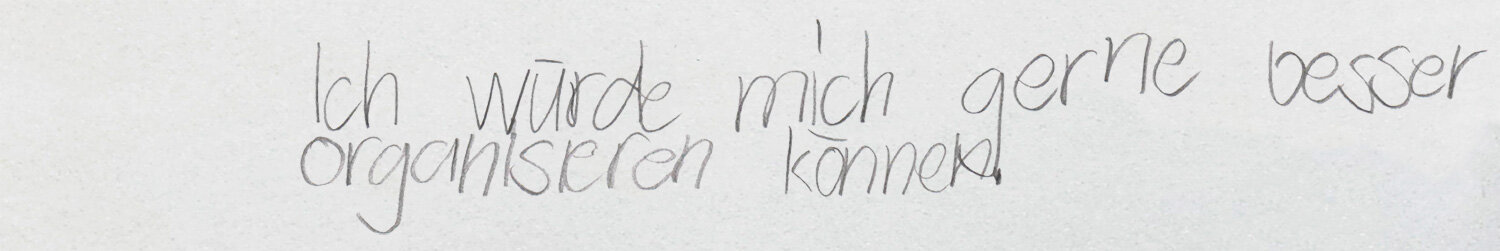 Ich würde mich gerne besser
organisieren können.